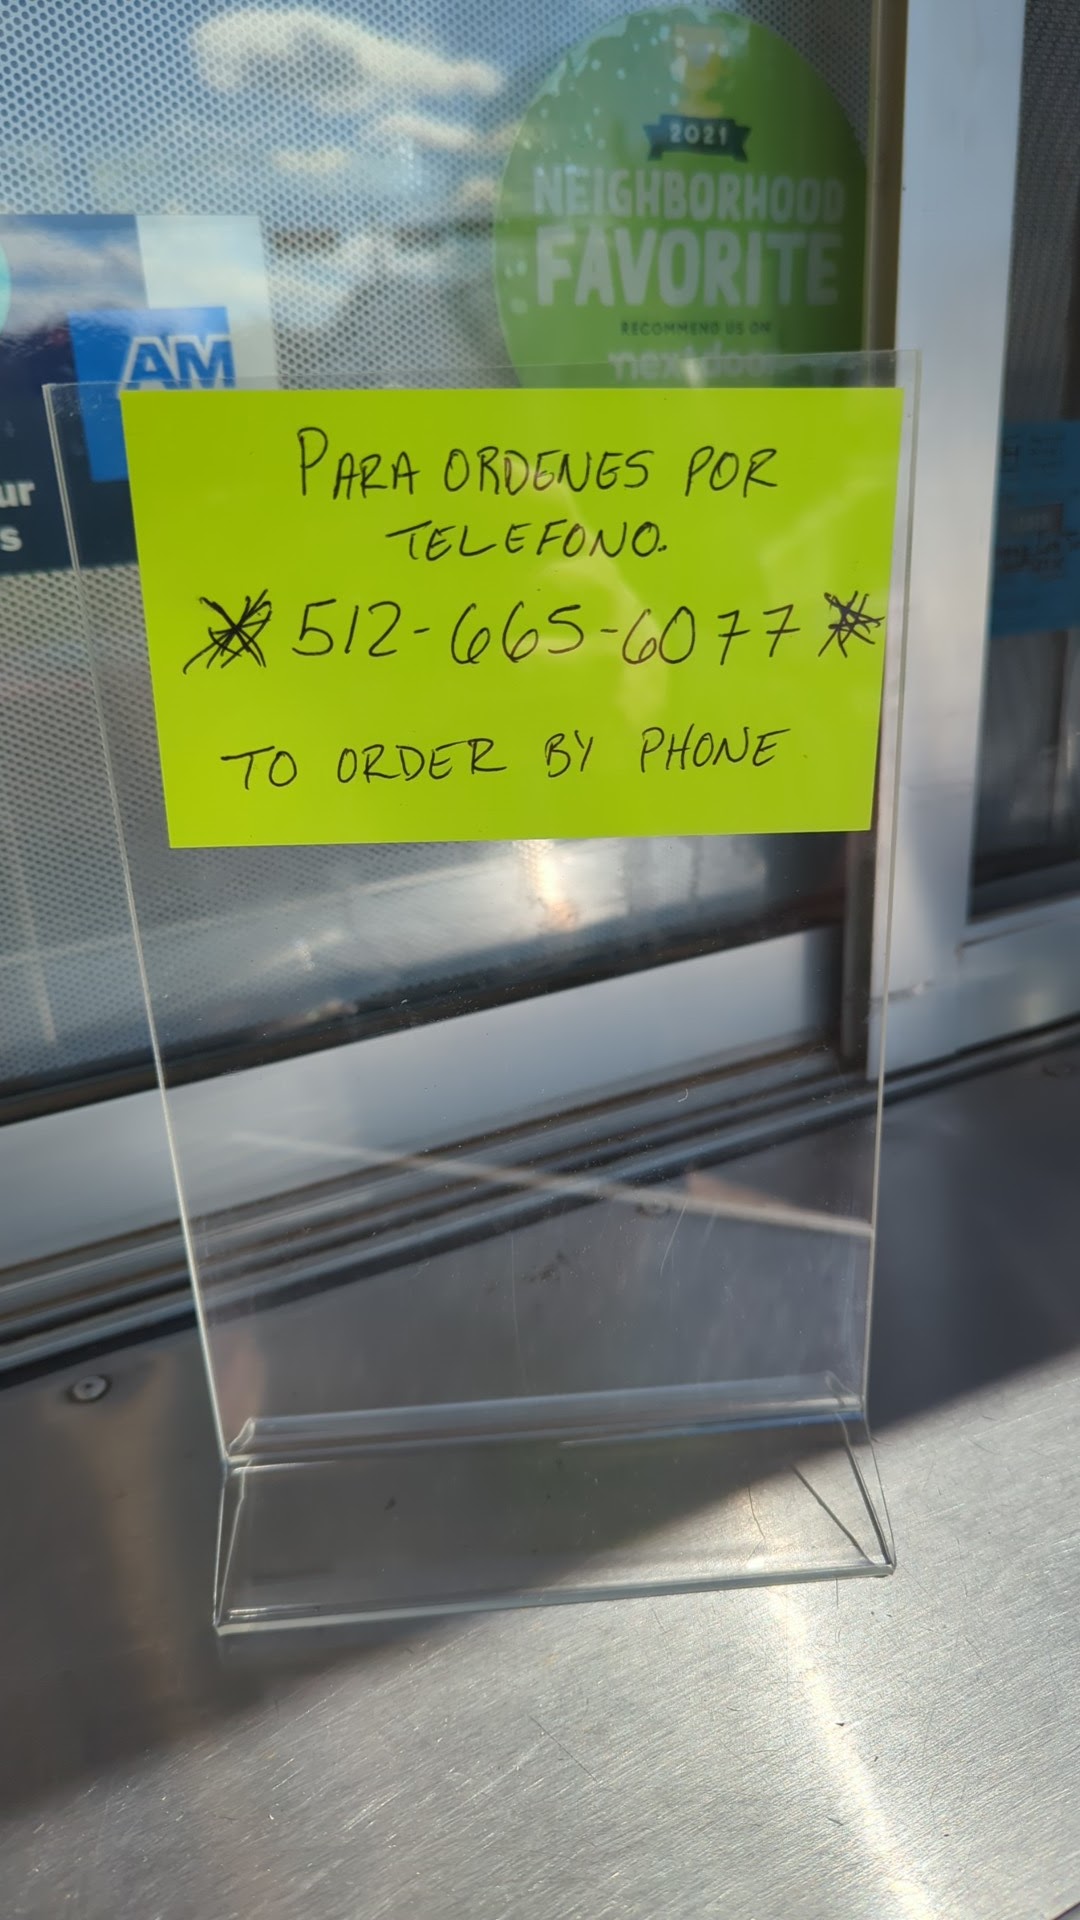 2021
NEIGHBORHOOD
FAVORITE
RECOMMEND US ON
nextdoor
AM
ur
s
PARA ORDENES POR
TELEFONO.
512-665-6077
TO ORDER BY PHONE